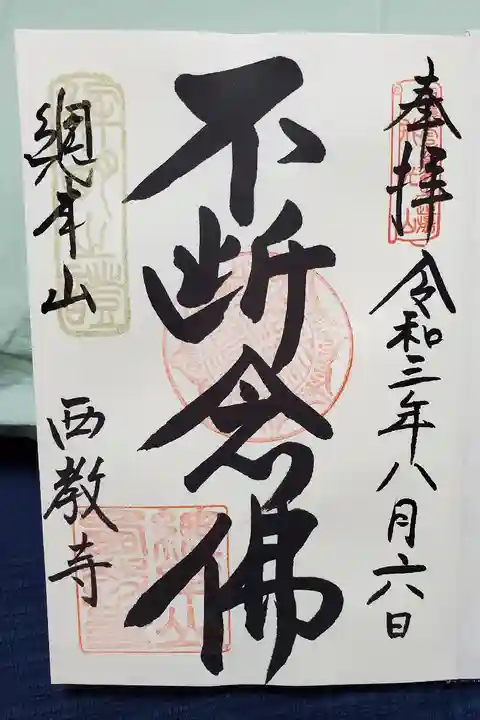 奉拝
令和三年八月六日
不断念佛
總本山
西教寺